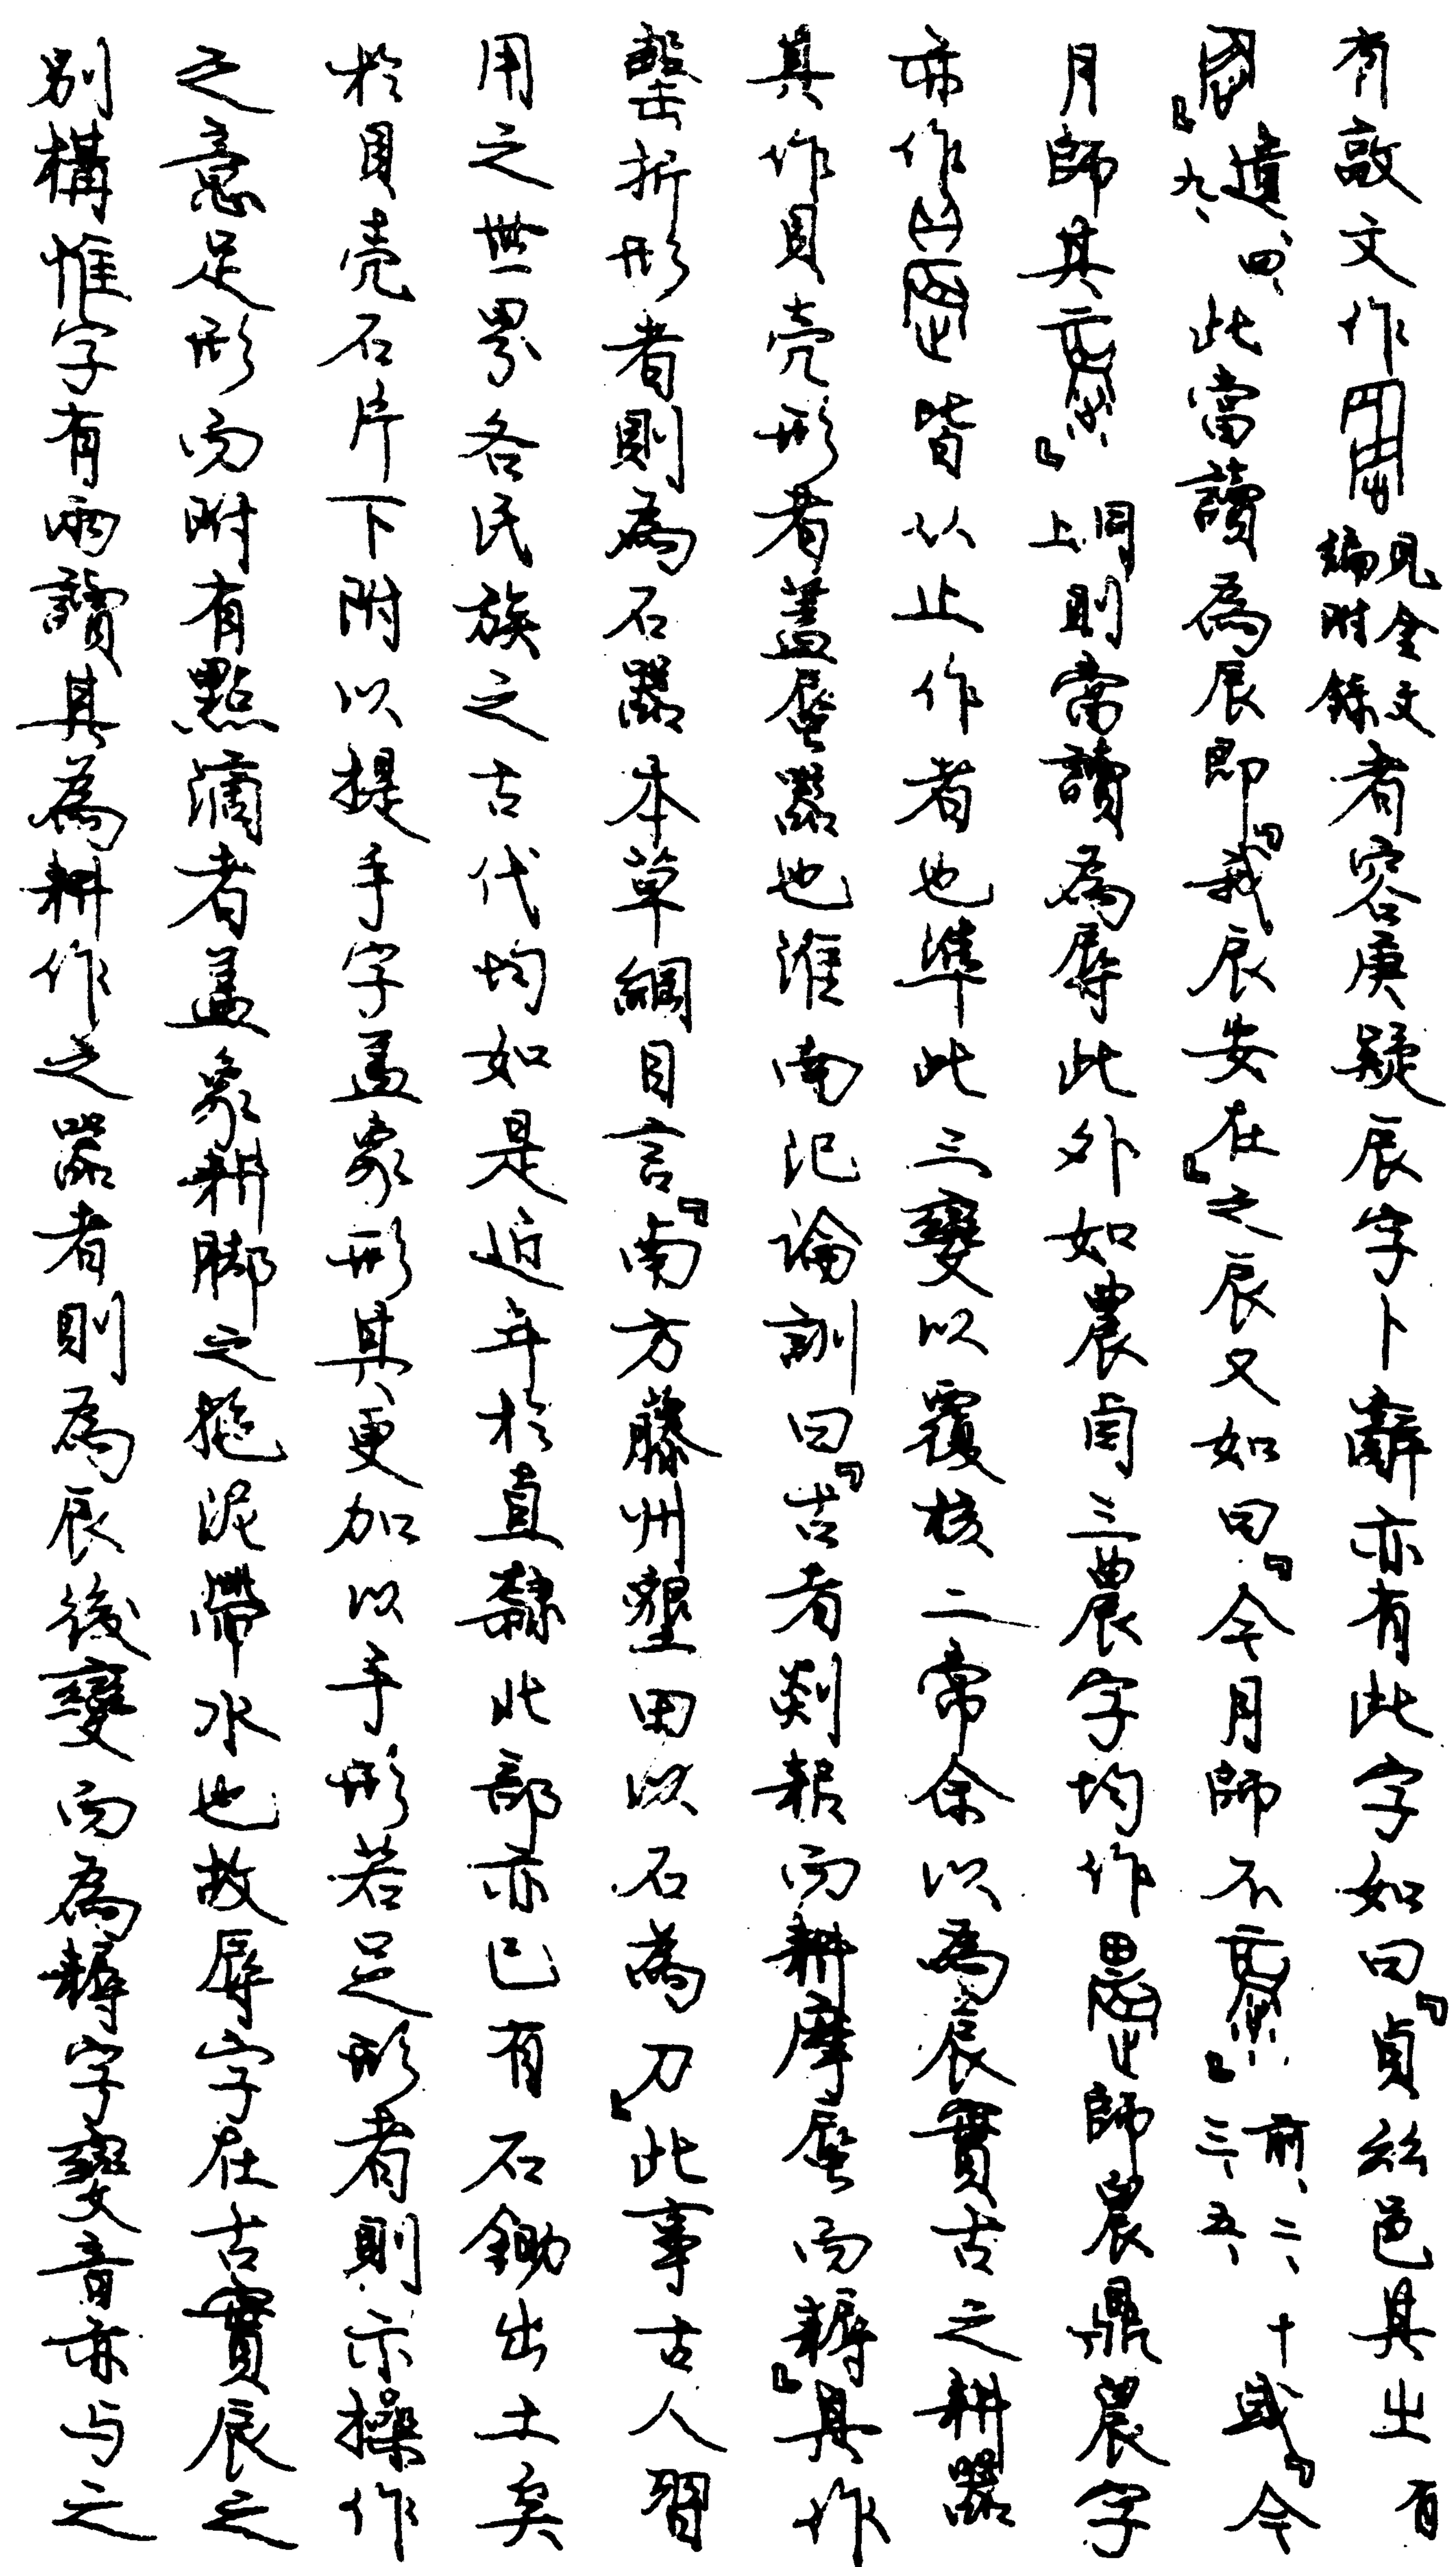 有敔文作見金文編附錄者容庚疑辰字卜辭亦有此字如曰『貞絲邑其出有
』遺、四、九、此當讀為辰即『我辰安在』之辰又如曰『今月師不』前、二、十三、五、或『今
月師其』同上則當讀為辱此外如農卣三農字均作師農鼎農字
亦作皆从止作者也準此三變以覆核二常余以為辰實古之耕器
其作貝壳形者蓋蜃器也淮南氾論訓曰『古者剡耜而耕摩蜃而耨』其作
磬折形者則為石器本草綱目言『南方藤州墾田以石為刀』此事古人習
用之世界各民族之古代均如是近年於直隸北部亦已有石鋤出土矣
於貝壳石片下附以提手字蓋象形其更加以手形若足形者則示操作
之意足形而附有點滴者蓋象耕腳之拖泥帶水也故辱字在古實辰之
別構惟字有兩讀其為耕作之器者則為辰後變而為耨字變音亦与之